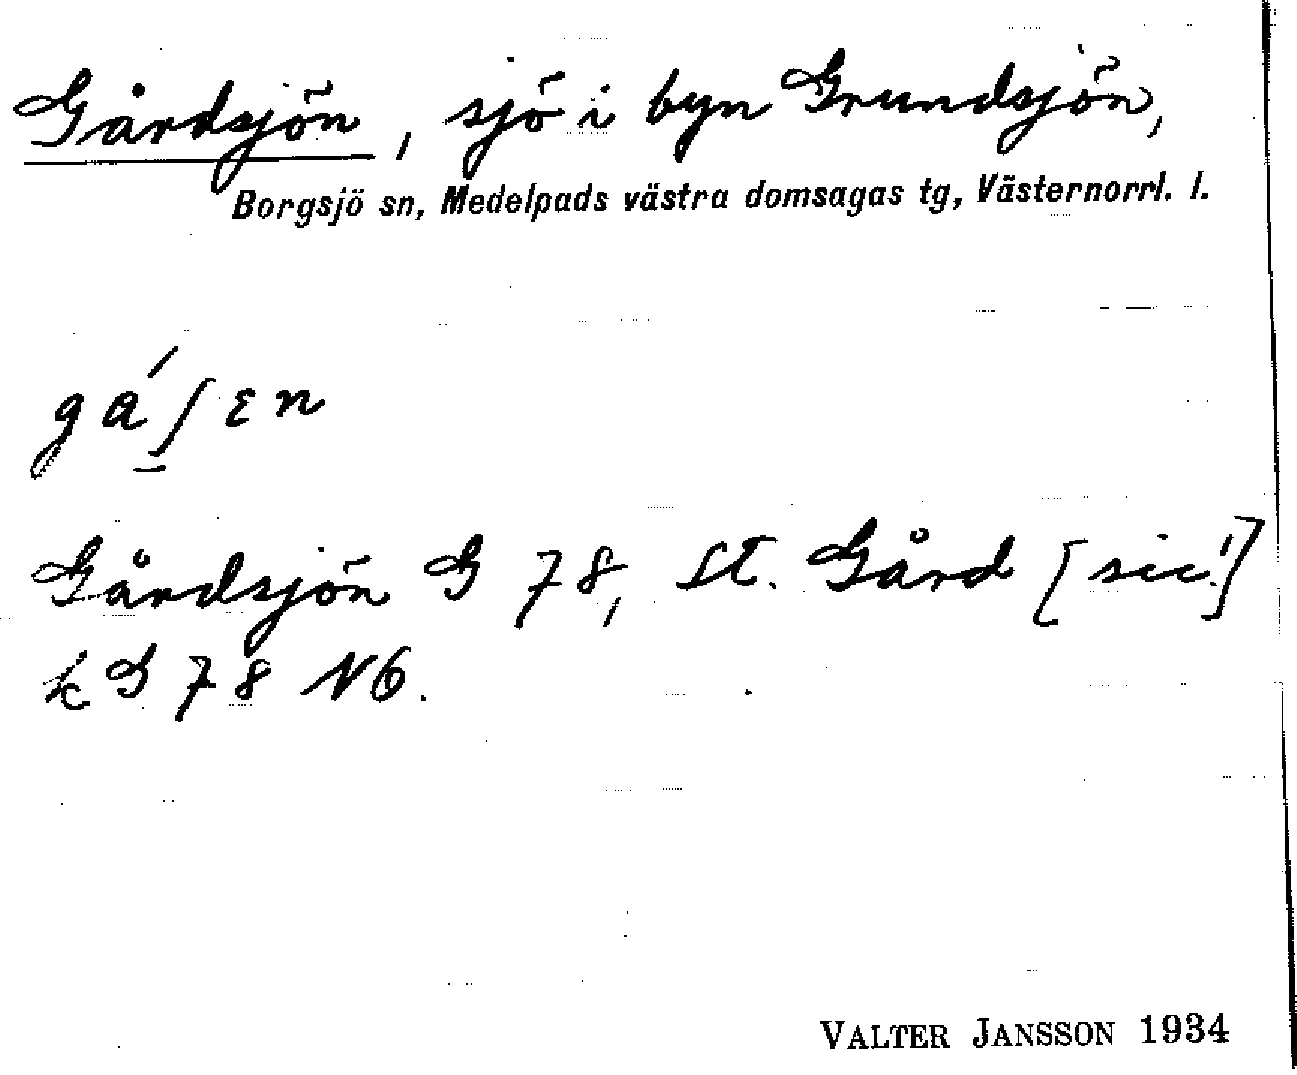 Gårdsjön, sjö i byn Grundsjön,
Borgsjö sn, Medelpads västra domsagas tg, Västernorrl. l.
gá ʃ ɛ n
Gårdsjön G 78, St. Gård [sic!]
k G 78 N6.
VALTER JANSSON 1934